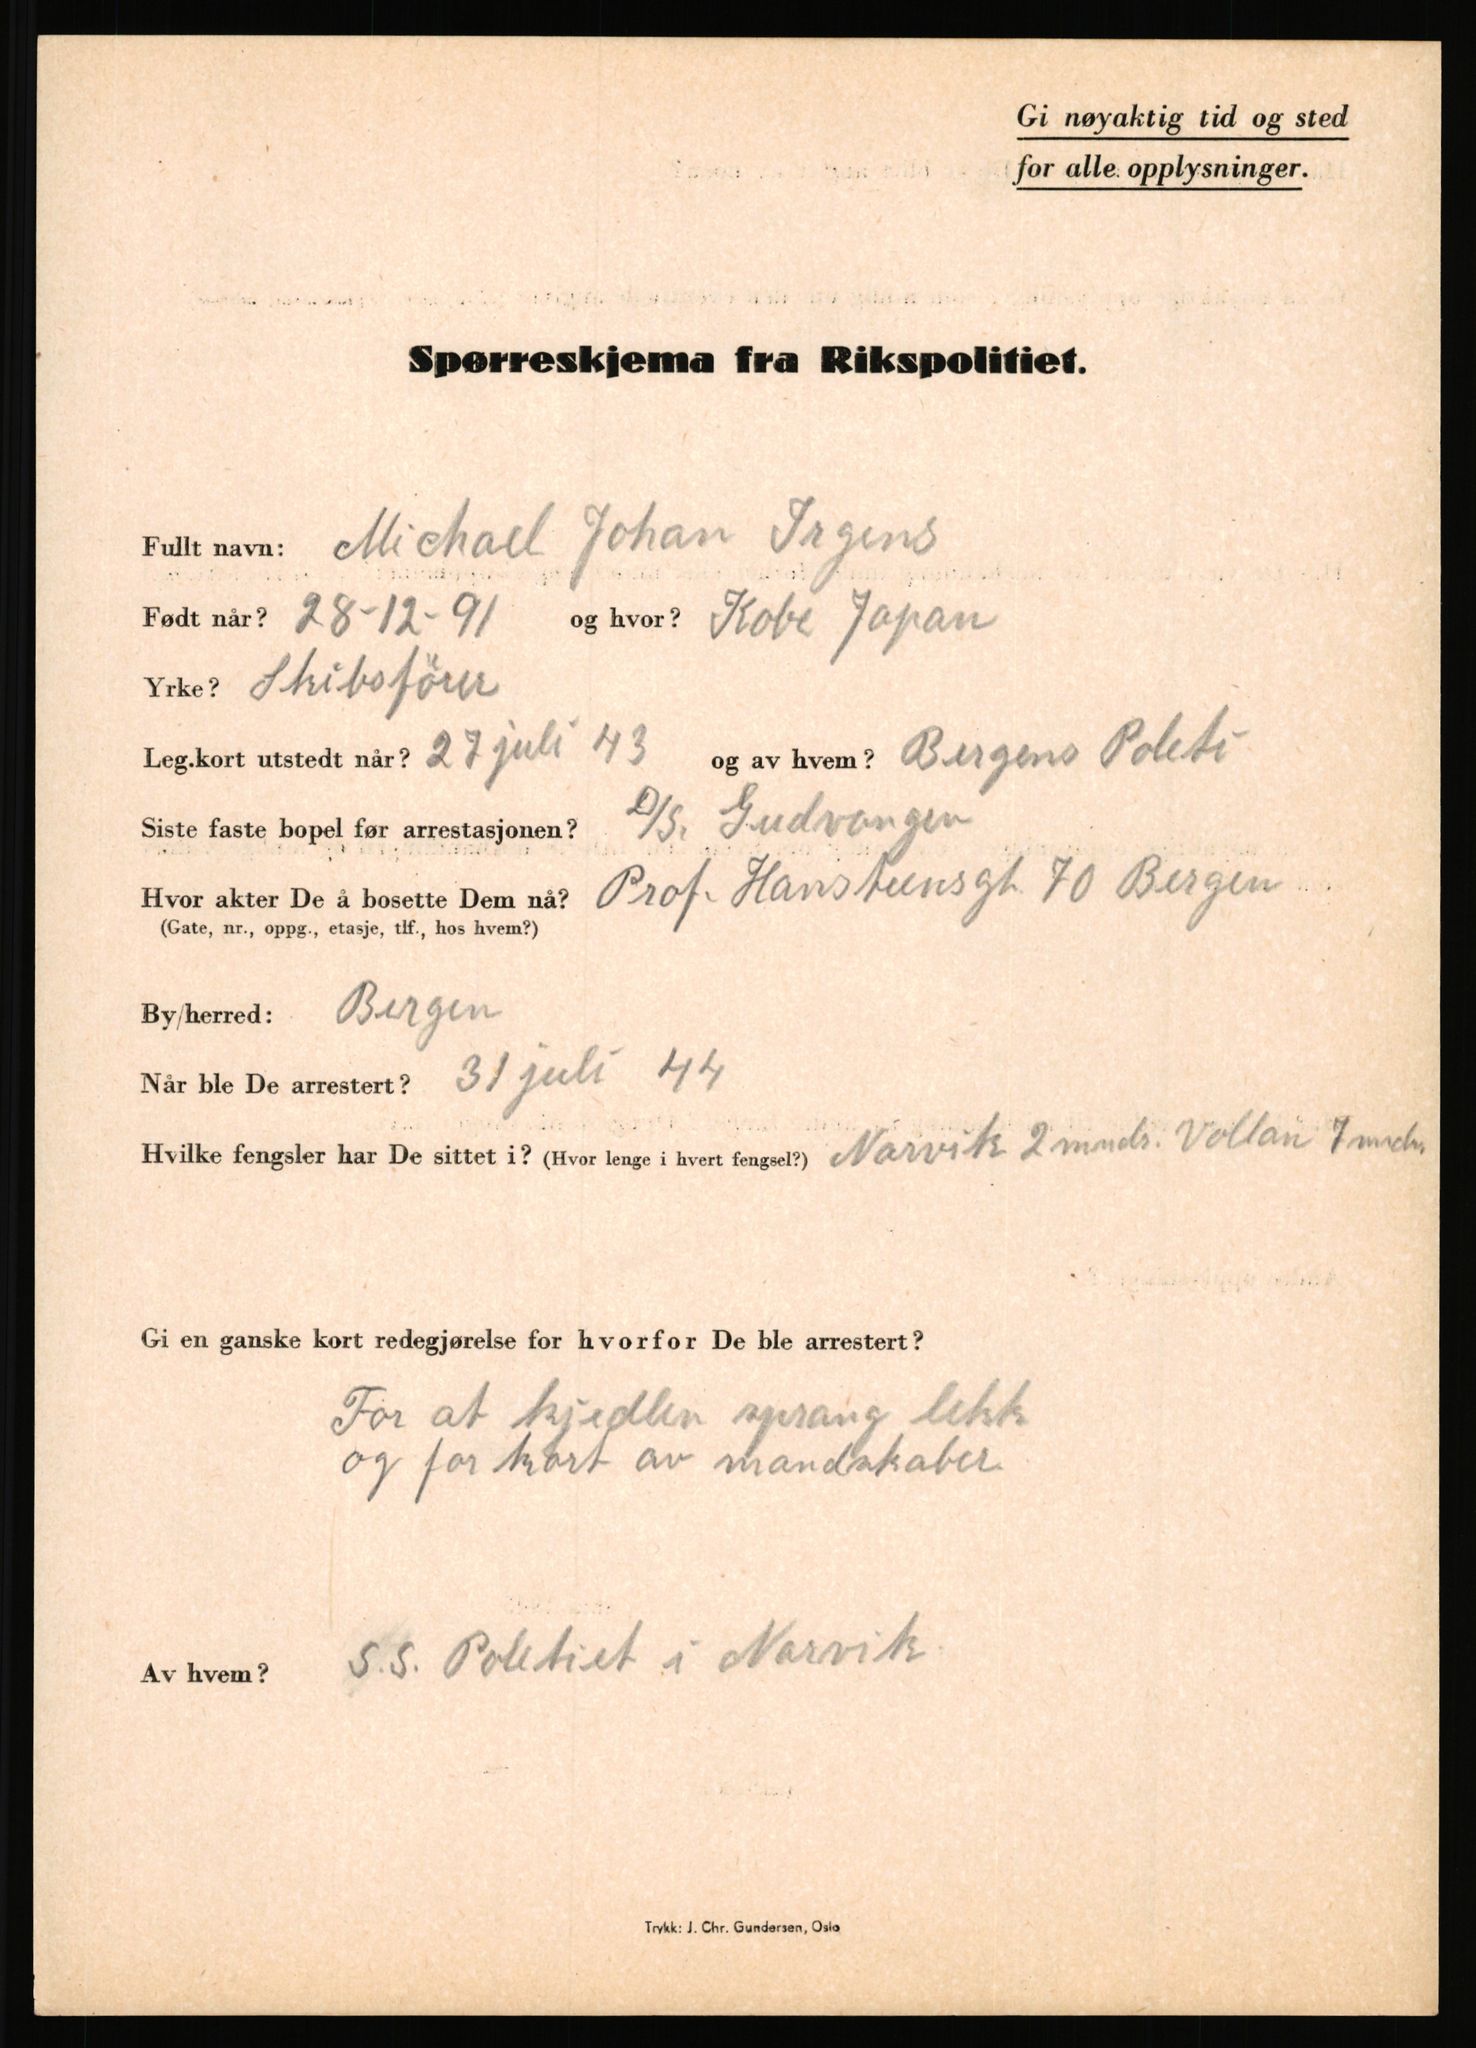 Gi nøyaktig tid og sted
for alle opplysninger.
Spørreskjema fra Rikspolitiet.
Fullt navn: Michael Johan Irgens
Født når? 28-12-91 og hvor? Kobe Japan
Yrke? Skibsförer
Leg.kort utstedt når? 27 juli 43 og av hvem? Bergens Poleti
Siste faste bopel før arrestasjonen? D/S. Gudvangen
Hvor akter De å bosette Dem nå? Prof. Hansteensgt 70 Bergen
(Gate, nr., oppg., etasje, tlf., hos hvem?)
By/herred: Bergen
Når ble De arrestert? 31 juli 44
Hvilke fengsler har De sittet i? (Hvor lenge i hvert fengsel?) Narvik 2 mndr. Vollan 7 mndr.
Gi en ganske kort redegjørelse for hvorfor De ble arrestert?
For at kjedlen sprang lekk
og for kort av mandskaber
Av hvem? S.S. Poletiet i Narvik
Trykk: J. Chr. Gundersen, Oslo